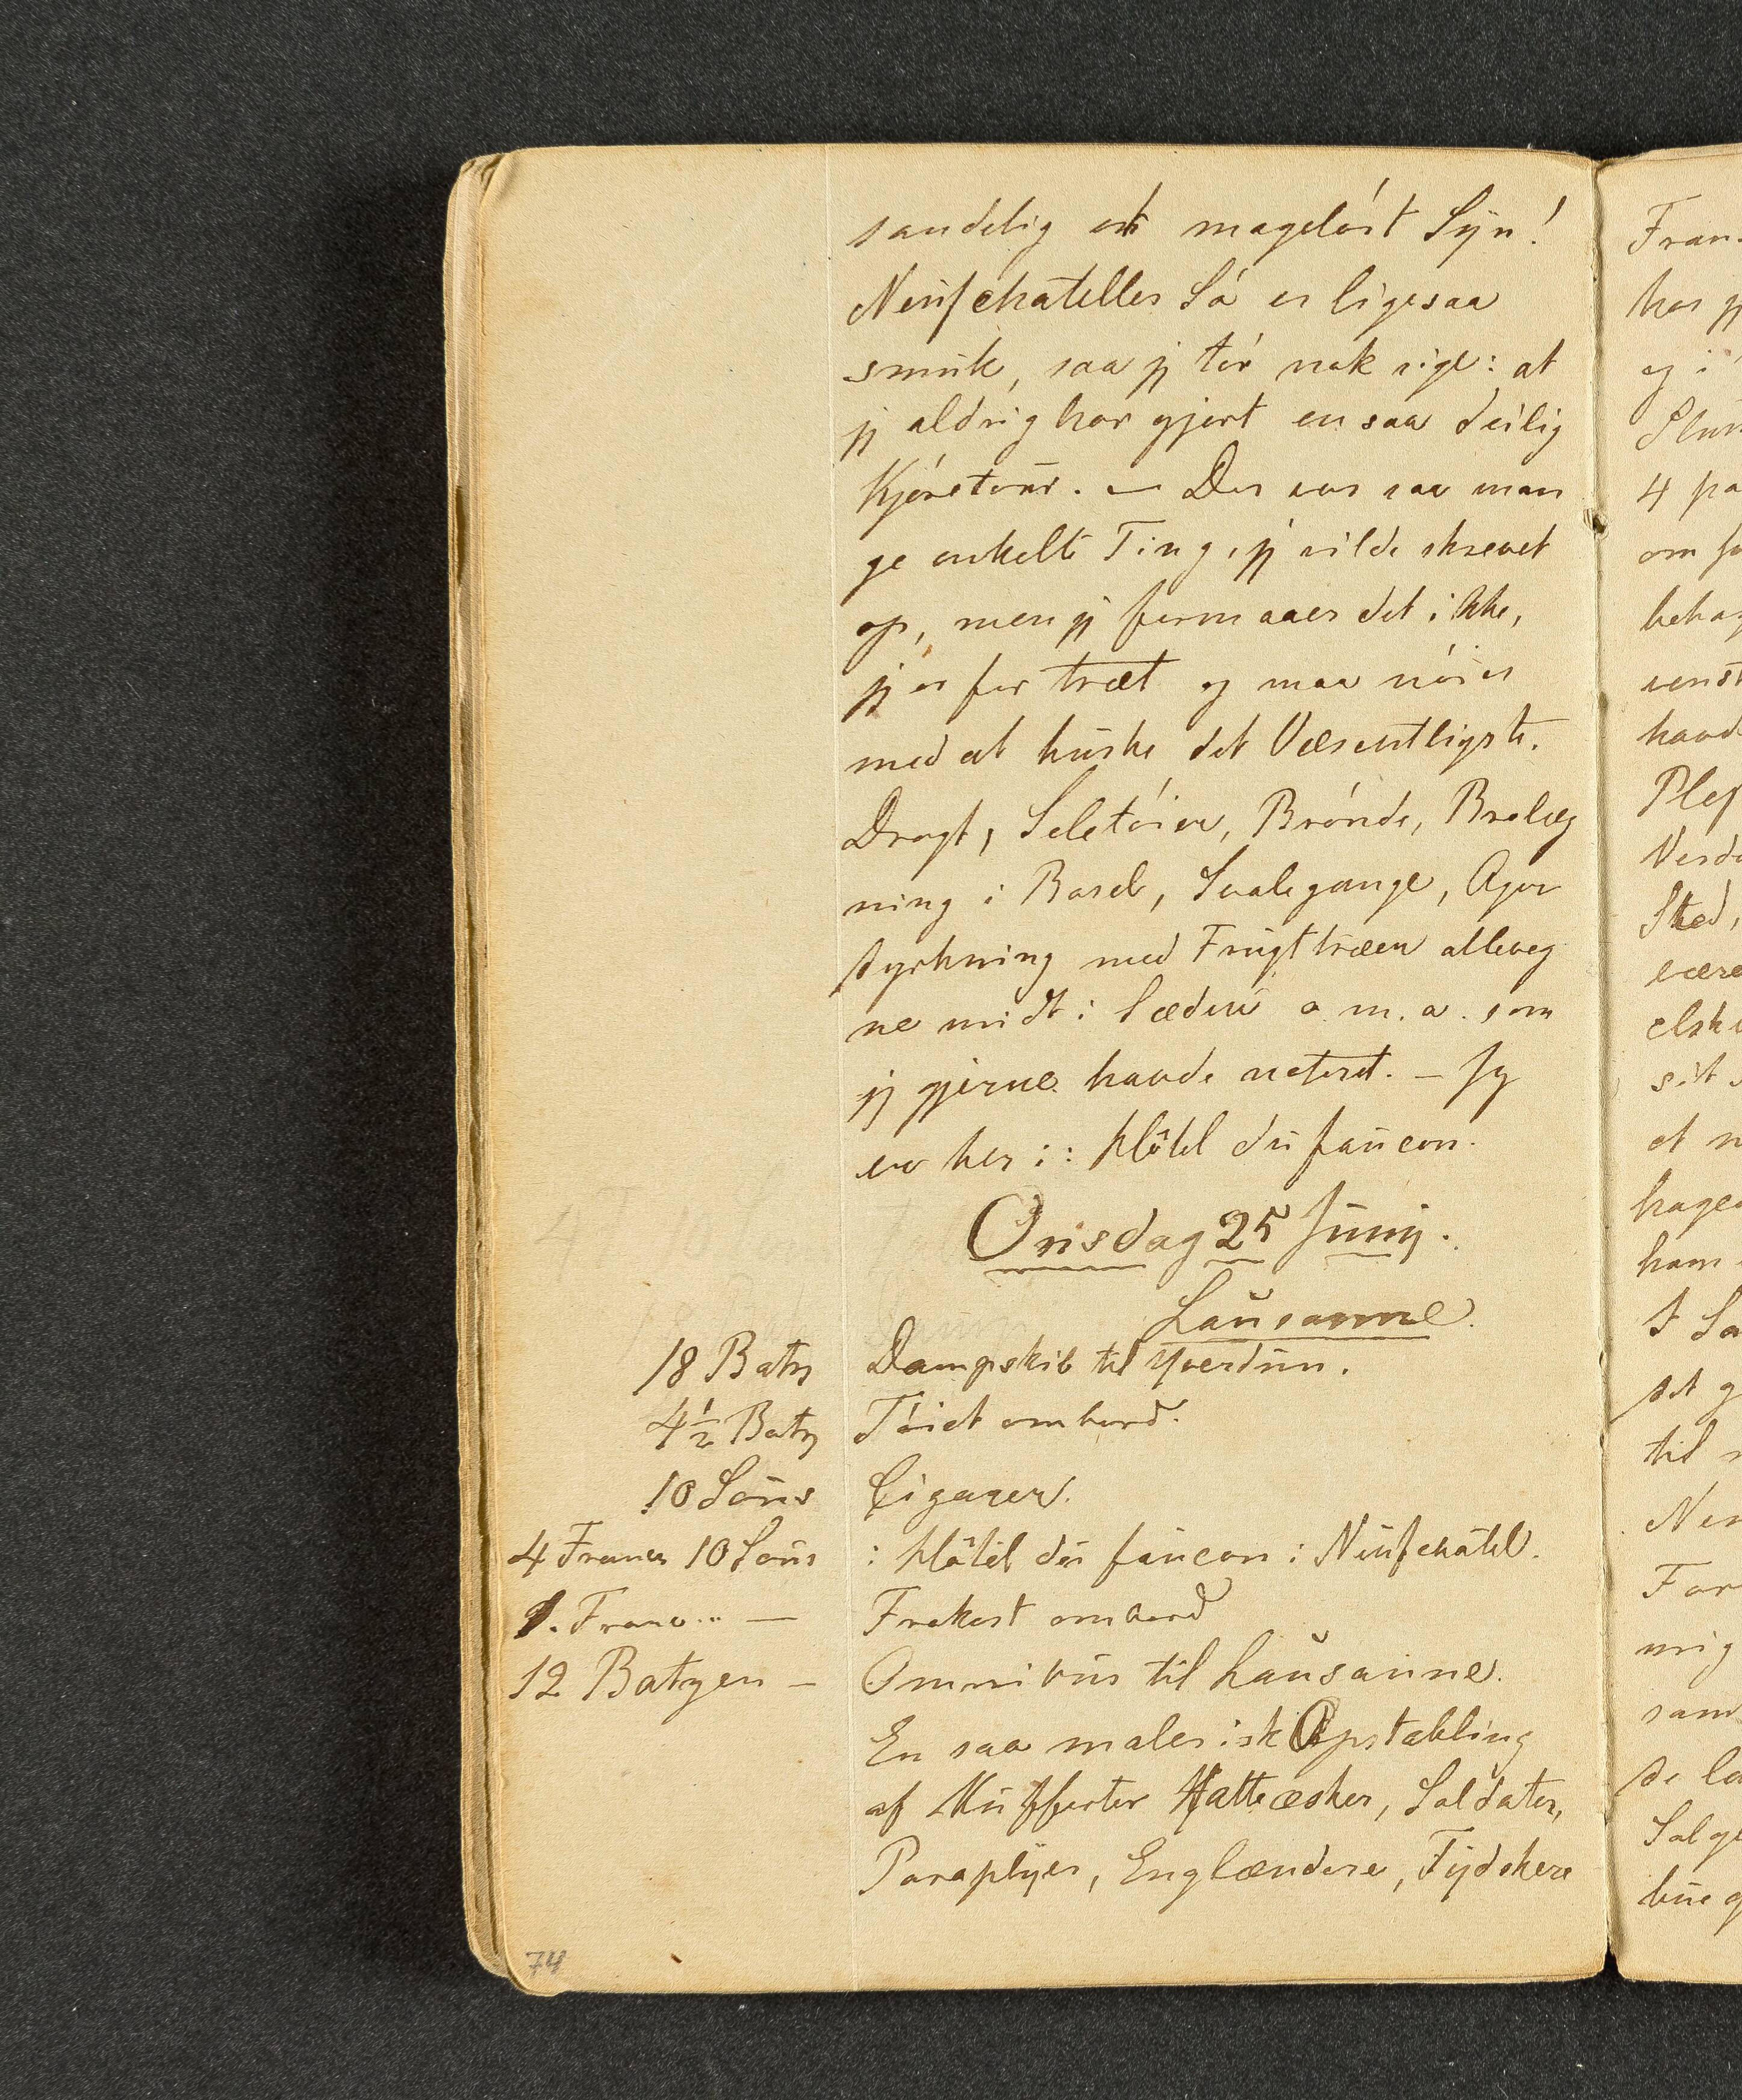 sandelig et mageløst Syn!
Neufchateller Sø er ligesaa
smuk, saa jeg tør nok sige: at
jeg aldrig har gjort en saa deilig
Kjøretour. — Der var saa man
ge enkelte Ting, jeg vilde skrevet
op, men jeg formaaer det ikke,
jeg er for træt og maa nøies
med at huske det Væsentligste.
Dragt, Seletøier, Brønde, Brolæg
ning i Basel, Svalegange, Ager
dyrkning med Frugttræer alleveg
ne midt i Sæden o. m. a. som
jeg gjerne havde noteret. — Jeg
er her i: Hôtel du faucon.
Onsdag 25 Junij.
Lausanne.
18 Batz Dampskib til Yverdun.
4½ Batz Tøiet ombord.
10 Sous Cigarer.
4 Francs 10 Sous : Hôtel du faucon i Neufchâtel.
1. Franc — Frokost ombord
12 Batzen — Omnibus til Lausanne.
En saa malerisk Opstabling
af Kufferter Hatteæsker, Soldater,
Paraplyer, Englændere, Tydskere
74
Fran
har jeg
og i
4 pa
om
behag
venst
havd
Verde
Sted,
være
elsk
sit
et
hage
ham
det g
til
Neu
For
mig
sam
de la